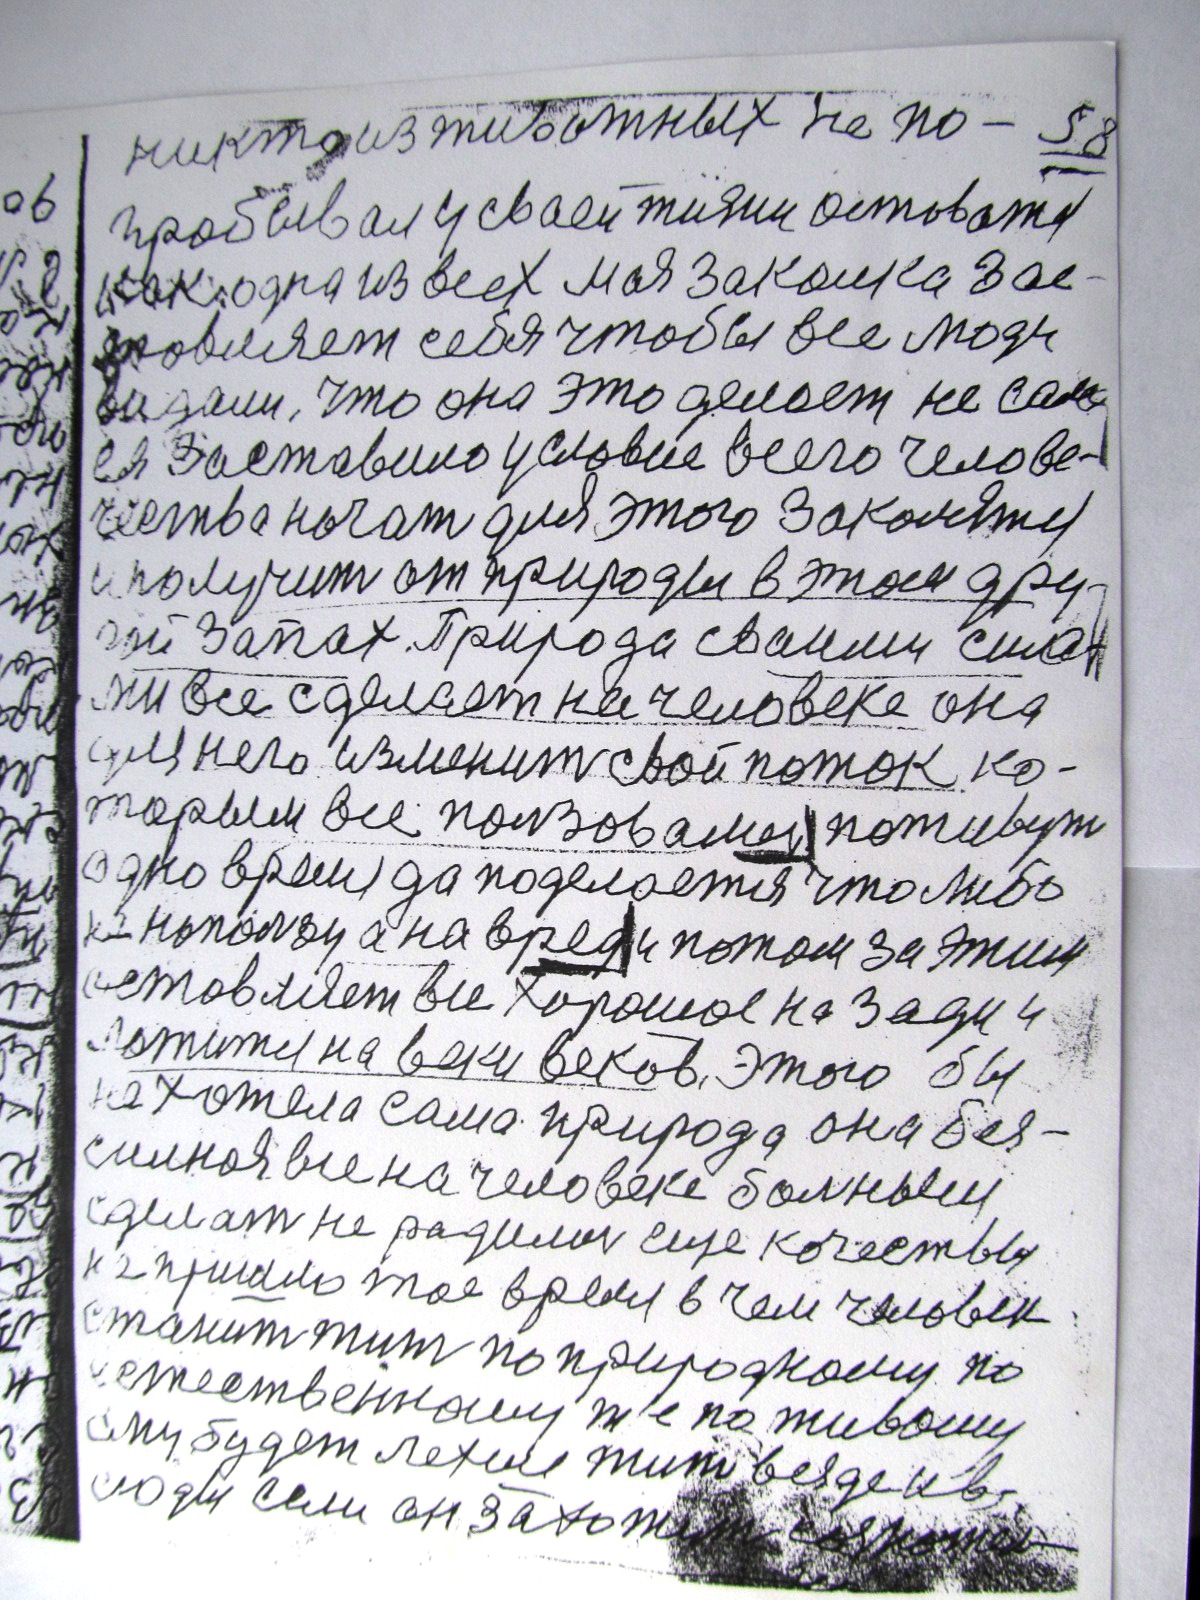 никто из животных не по- 58
пробывал у своей жизни остоватя
как одна из всех моя закалка зас-
товляет себя чтобы все люди
видали, что она это делает не сама
ея заставило условие всего челове-
чества начат для этого закалятя
и получит от природы в этом дру-
гой запах. Природа своими сила-
ми все сделает на человеке она
для него изменит свой поток ко-
торым все ползовалися, поживут
одно время да поделается что либо
не наползу а на вред и потом за этим
оставляет все хорошое на зади и
ложится на веки веков. Этого бы
не хотела сама природа она бея-
силная все на человеке болныем
сделат не радилис еще качествы
не пришло тое время в чем человек
станит жит по природному по
естественному же по живому
ему будет лехче жит везде и в-
сюды если он захочет